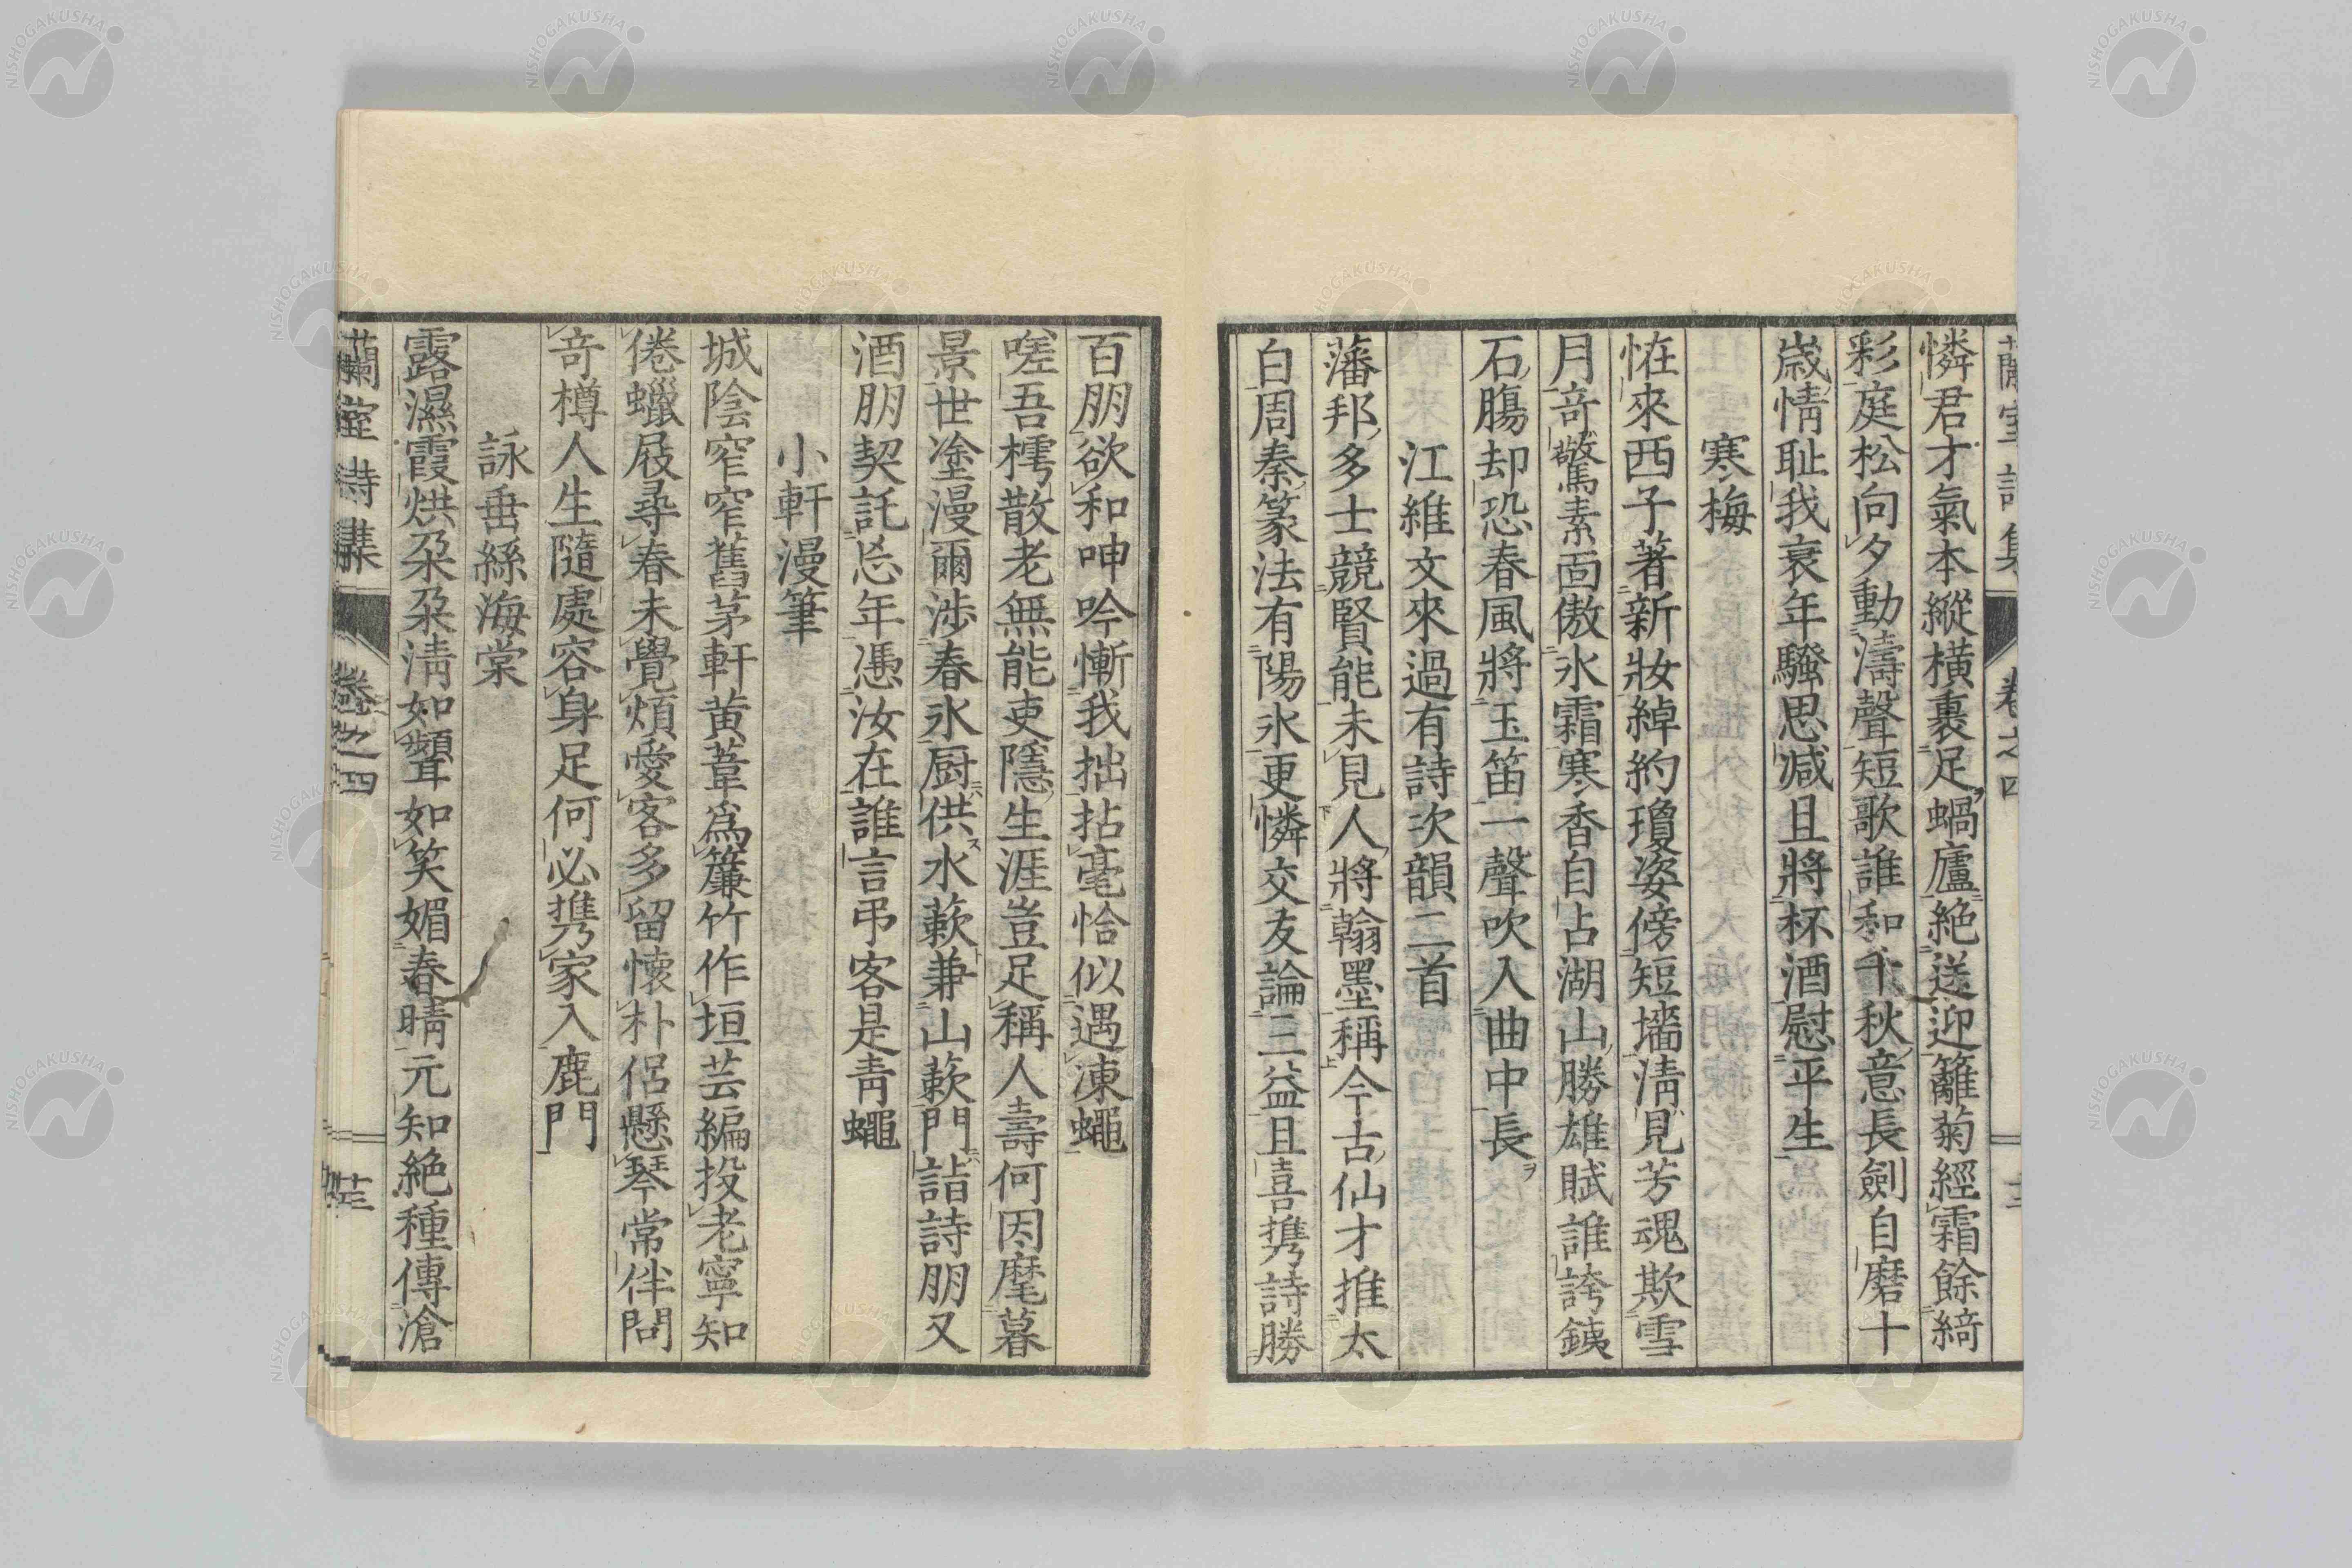 蘭室詩集 卷之四
憐君才氣本縱橫裹足蝸廬絶送迎籬菊經霜餘綺
彩庭松向夕動濤聲短歌誰和千秋意長劍自磨十
歳情耻我衰年騷思减且將杯酒慰平生
寒梅
恠來西子著新妝綽約瓊姿傍短墻淸見芳魂欺雪
月竒驚素面傲氷霜寒香自占湖山勝雄賦誰誇銕
石膓却恐春風將玉笛一聲吹入曲中長
江維文來過有詩次韻二首
藩邦多士競賢能未見人將翰墨稱今古仙才推太
白周秦篆法有陽氷更憐交友論三益且喜携詩勝
百朋欲和呻吟慚我拙拈毫恰似遇凍蠅
嗟吾樗散老無能吏隱生涯豈足稱人壽何因麾暮
景世塗漫爾涉春氷厨供水蔌兼山蔌門詣詩朋又
酒朋契託忘年憑汝在誰言弔客是靑蠅
小軒漫筆
城陰窄窄舊茅軒黄葦爲簾竹作垣芸編投老寧知
倦蠟屐尋春未覺煩愛客多留懷朴侶懸琴常伴問
竒樽人生隨處容身足何必携家入鹿門
詠垂絲海棠
露濕霞烘朶朶淸如顰如笑媚春晴元知絶種傳滄
蘭室詩集 卷之四